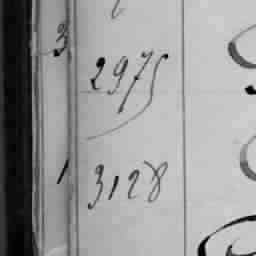 3
2975
1
3128